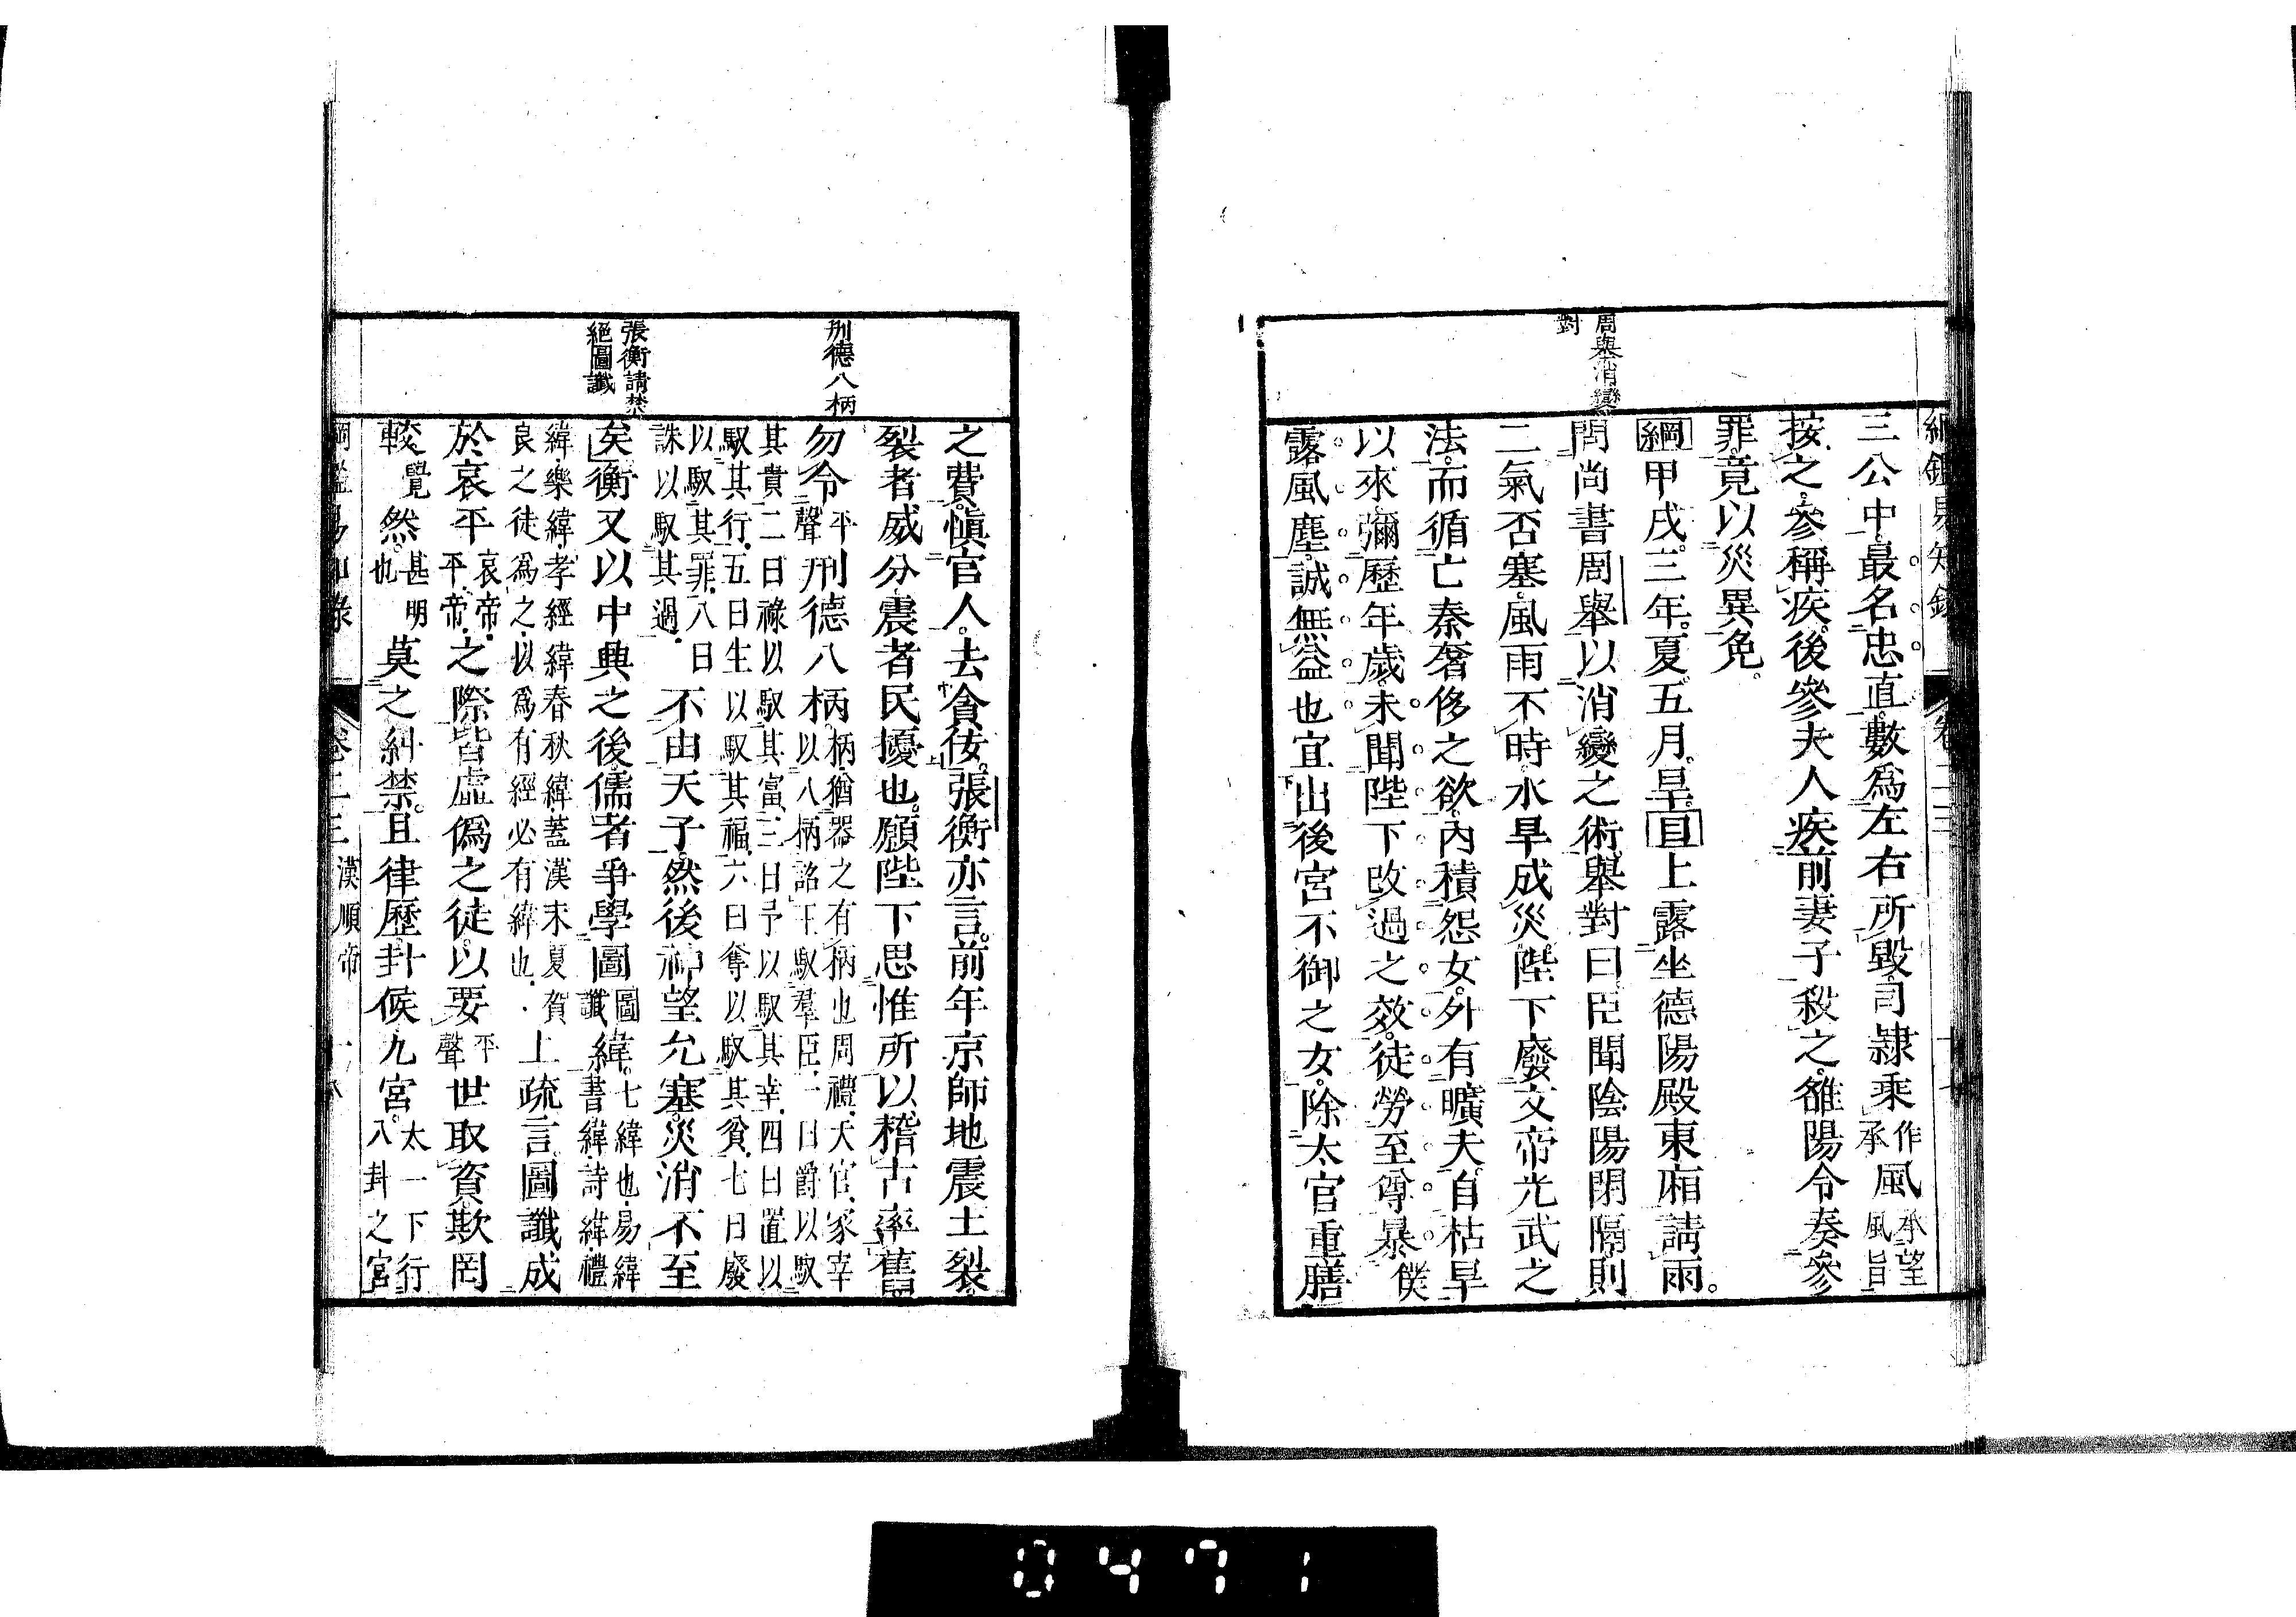 綱鑑易知錄 卷二三 十七
周舉消變
對
三公中最名忠直數爲左右所毀司隷乘作承風承望風旨
按之參稱疾後參夫人疾前妻子殺之雒陽令奏參
罪竟以災異免
綱甲戌三年夏五月旱目上露坐德陽殿東廂請雨
問尚書周舉以消變之術舉對曰臣聞陰陽閉隔則
二氣否塞風雨不時水旱成災陛下廢文帝光武之
法而循亡秦奢侈之欲內積怨女外有曠夫自枯旱
以來彌歷年歲未聞陛下改過之效徒勞至尊暴僕
露風塵誠無益也宜出後宮不御之女除太官重膳
刑德八柄
張衡請禁
絕圖讖
之費愼官人去貪佞張衡亦言前年京師地震土裂
裂者威分震者民擾也願陛下思惟所以稽古率舊
勿令平聲刑德八柄柄猶器之有柄也周禮天官冢宰
以八柄詔王馭羣臣一曰爵以馭
其貴二曰祿以馭其富三曰予以馭其幸四曰置以
馭其行五曰生以馭其福六曰奪以馭其貧七曰廢
以馭其罪八曰
誅以馭其過不由天子然後神望允塞災消不至
矣衡又以中興之後儒者爭學圖圖讖緯七緯也易緯
書緯詩緯禮
緯樂緯孝經緯春秋緯蓋漢末夏賀
良之徒爲之以爲有經必有緯也上疏言圖讖成
於哀平哀帝平帝之際皆虛僞之徒以要平聲世取資欺罔
較覺然甚明也莫之糾禁且律歷卦候九宮太一下行
八卦之宮
綱鑑易知錄 卷二三 漢順帝 十八
0471